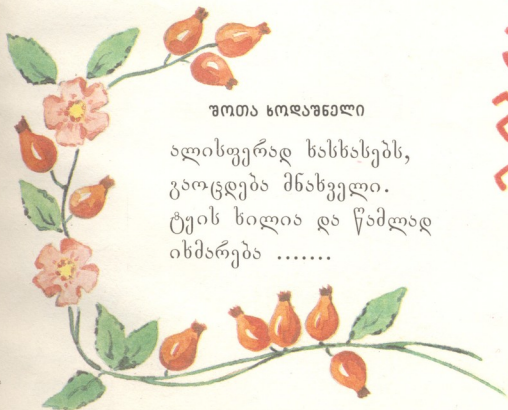 შოთა ხოდაშნელი
ალისფერად ხასხასებს,
გაოცდება მნახველი.
ტყის ხილია და წამლად
იხმარება .......